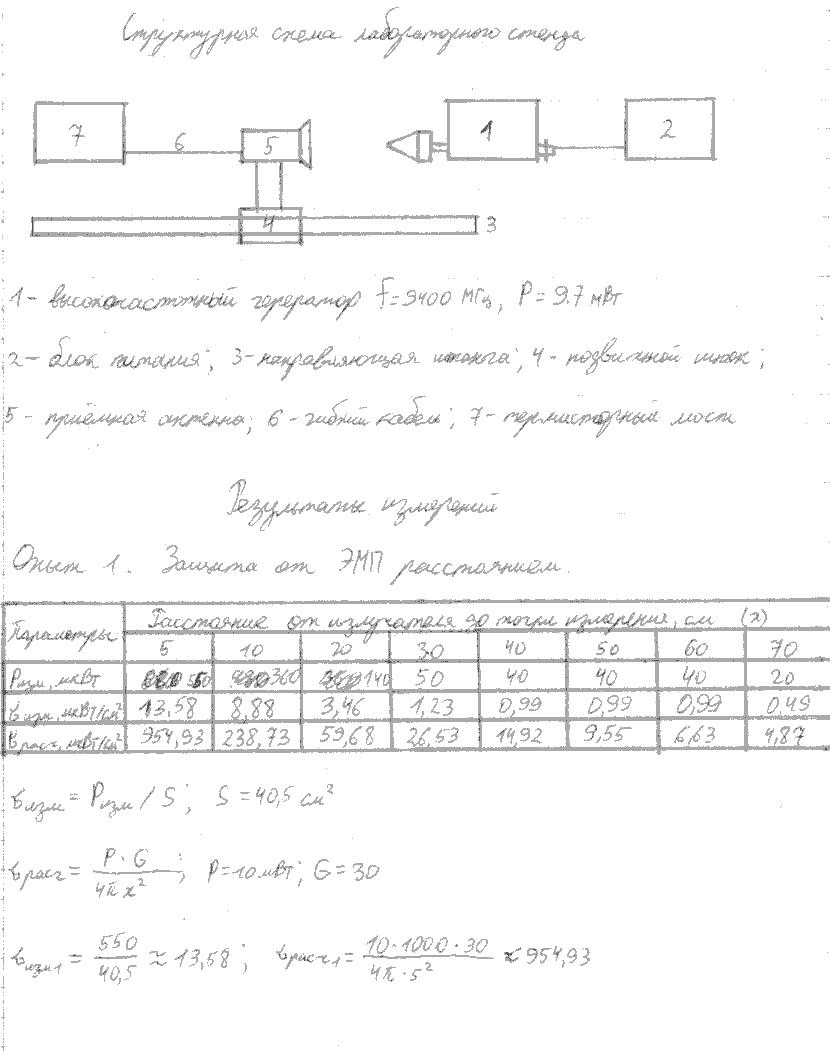 Структурная схема лабораторного стенда
7 6 5 1 2
4 3
1 - высокочастотный генератор f = 9400 МГц, P = 9.7 мВт
2 - блок питания; 3 - направляющая штанга; 4 - подвижной шток;
5 - приёмная антенна; 6 - гибкий кабель; 7 - термисторный мост
Результаты измерений
Опыт 1. Защита от ЭМП расстоянием.
Параметры Расстояние от излучателя до точки измерения, см (x)
5 10 20 30 40 50 60 70
Pизм, мкВт 550 360 140 50 40 40 40 20
σизм, мкВт/см² 13,58 8,88 3,46 1,23 0,99 0,99 0,99 0,49
σрасч, мкВт/см² 954,93 238,73 59,68 26,53 14,92 9,55 6,63 4,87
σизм = Pизм / S; S = 40,5 см²
σрасч = P · G / 4π x²; P = 10 мВт; G = 30
σизм1 = 550 / 40,5 ≈ 13,58; σрасч1 = 10 · 1000 · 30 / 4π · 5² ≈ 954,93